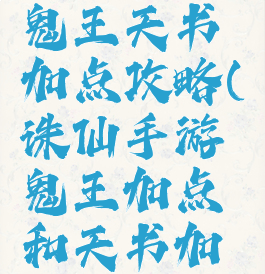 鬼王天书
加点攻略(
诛仙手游
鬼王加点
和天书加